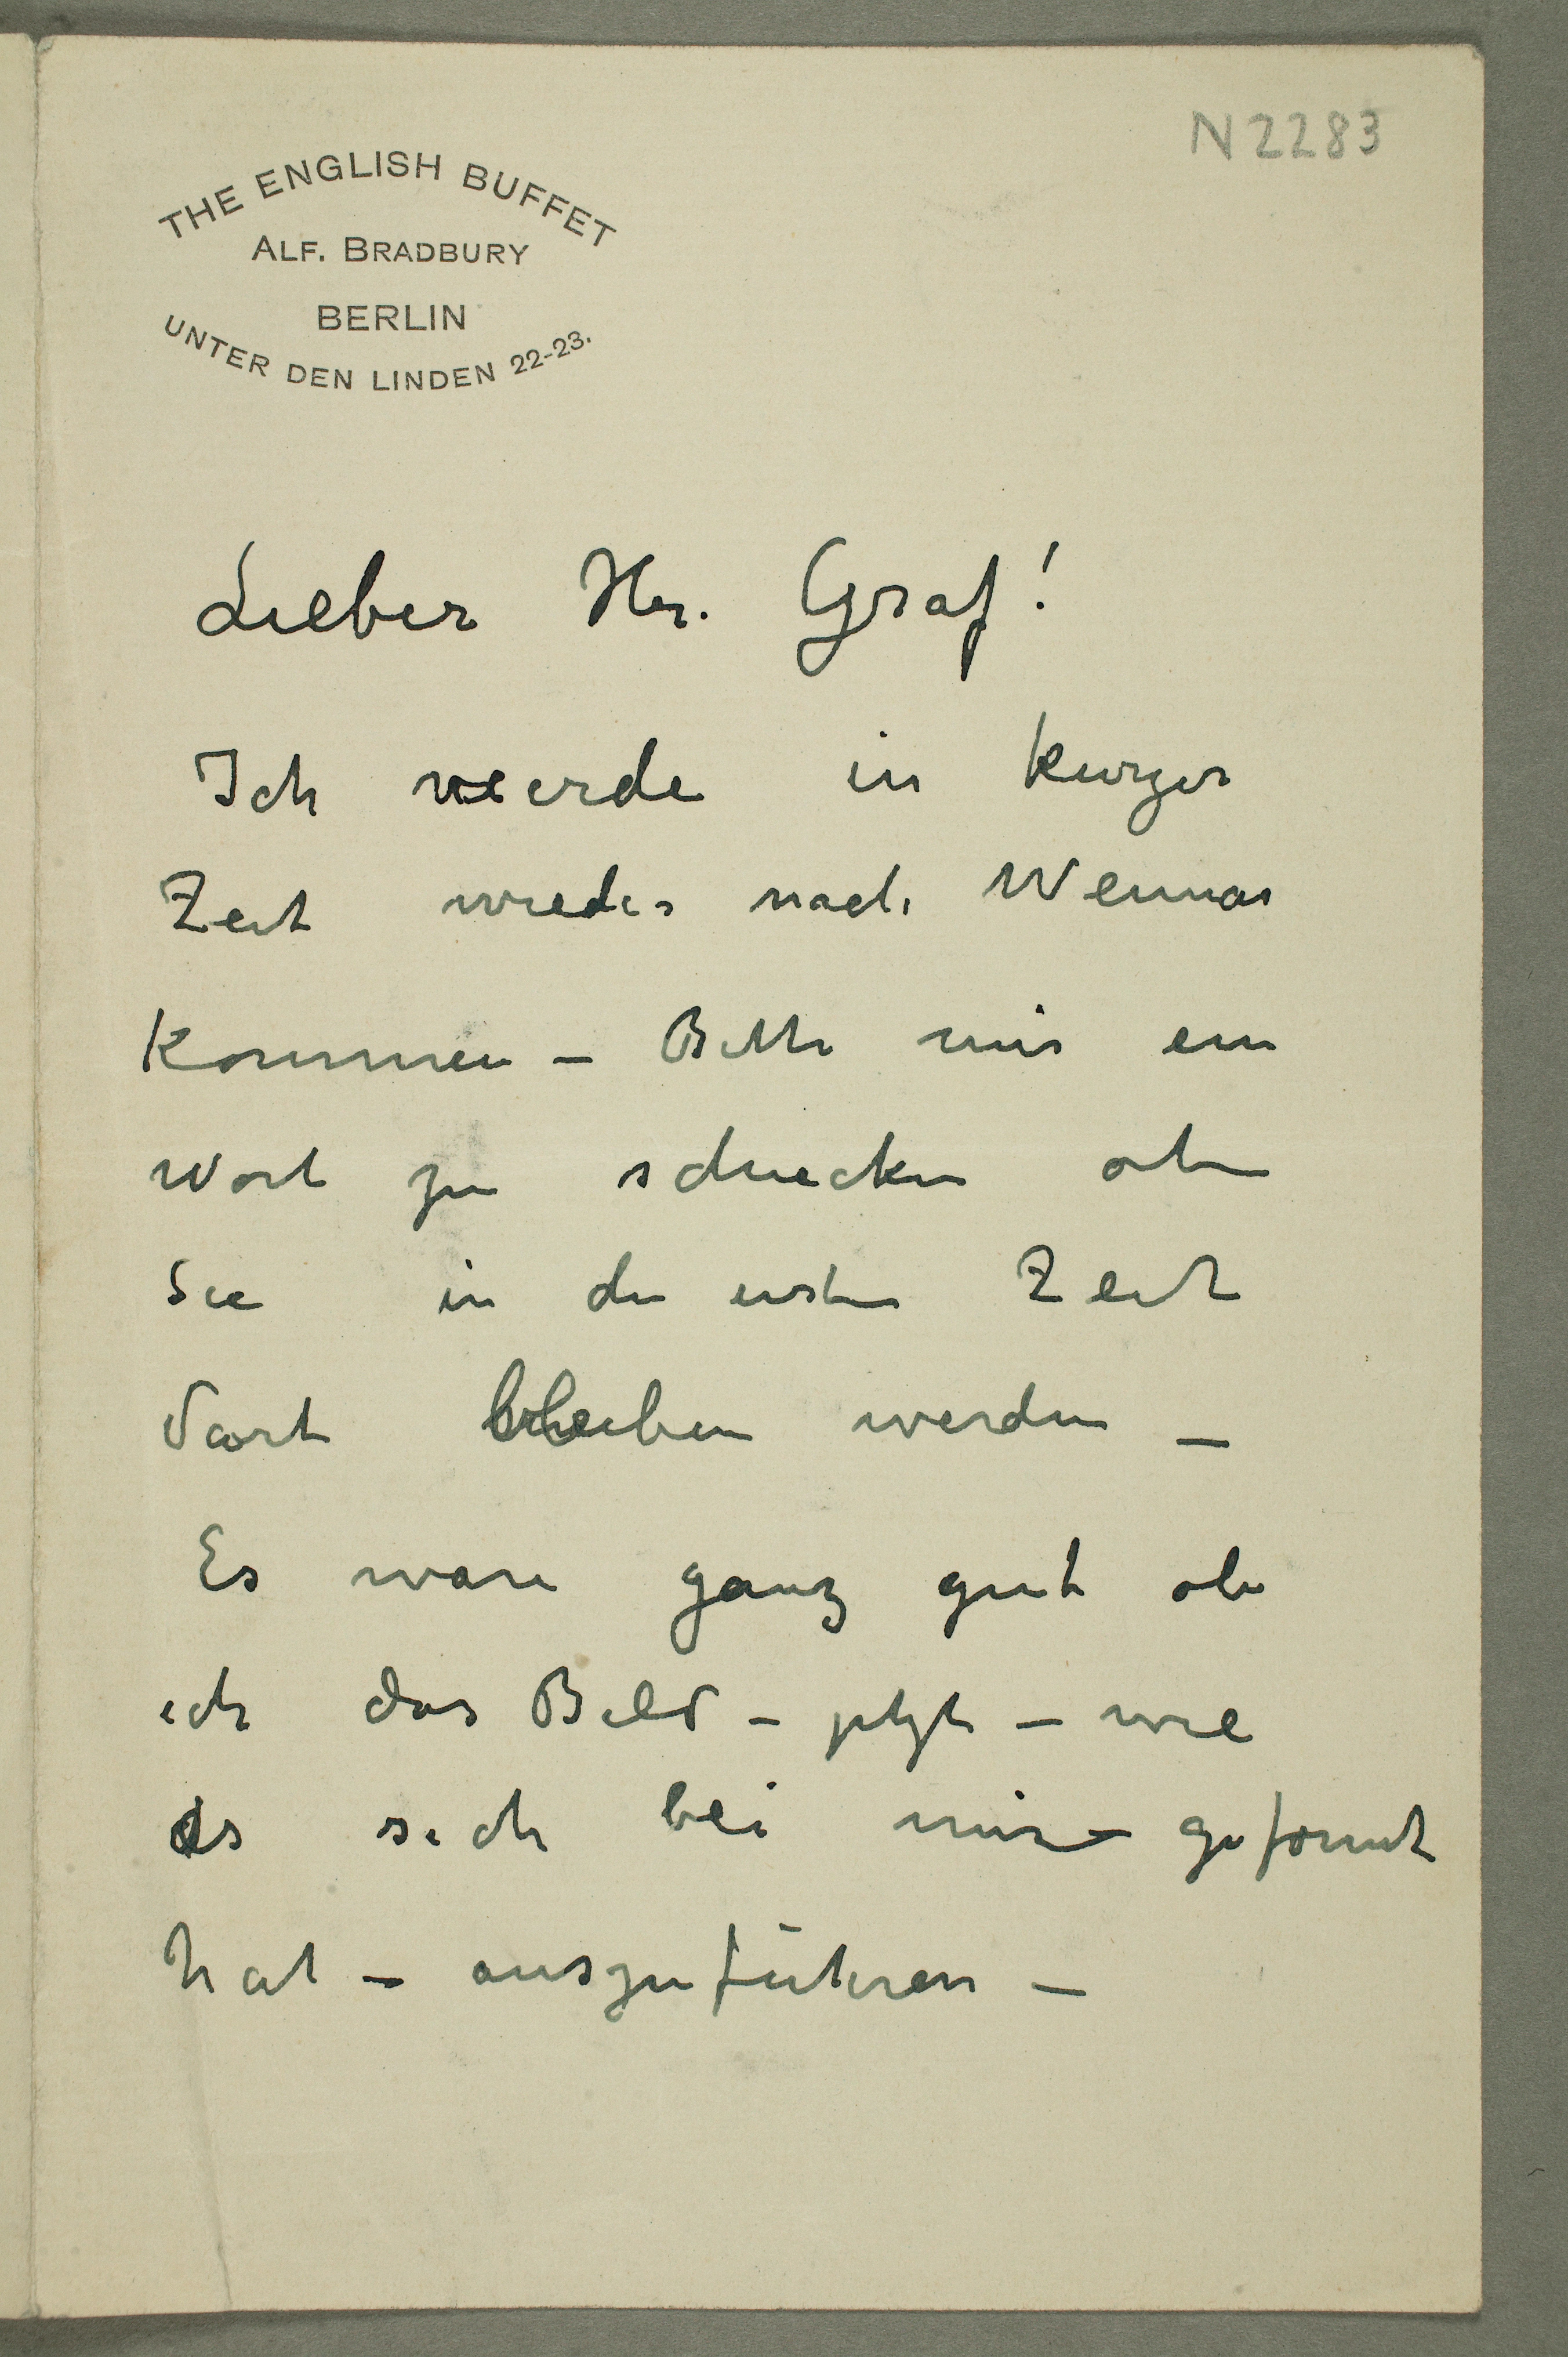 N 2283
THE ENGLISH BUFFET
ALF. BRADBURY
BERLIN
UNTER DEN LINDEN 22-23.
Lieber Hr. Graf!
Ich werde in kurzer
Zeit wieder nach Weimar
kommen – Bitte mir ein
Wort zu schicken ob
Sie in der ersten Zeit
dort bleiben werden –
Es wäre ganz gut ob
ich das Bild – jetzt – wie
es sich bei mir – geformt
hat – auszuführen –